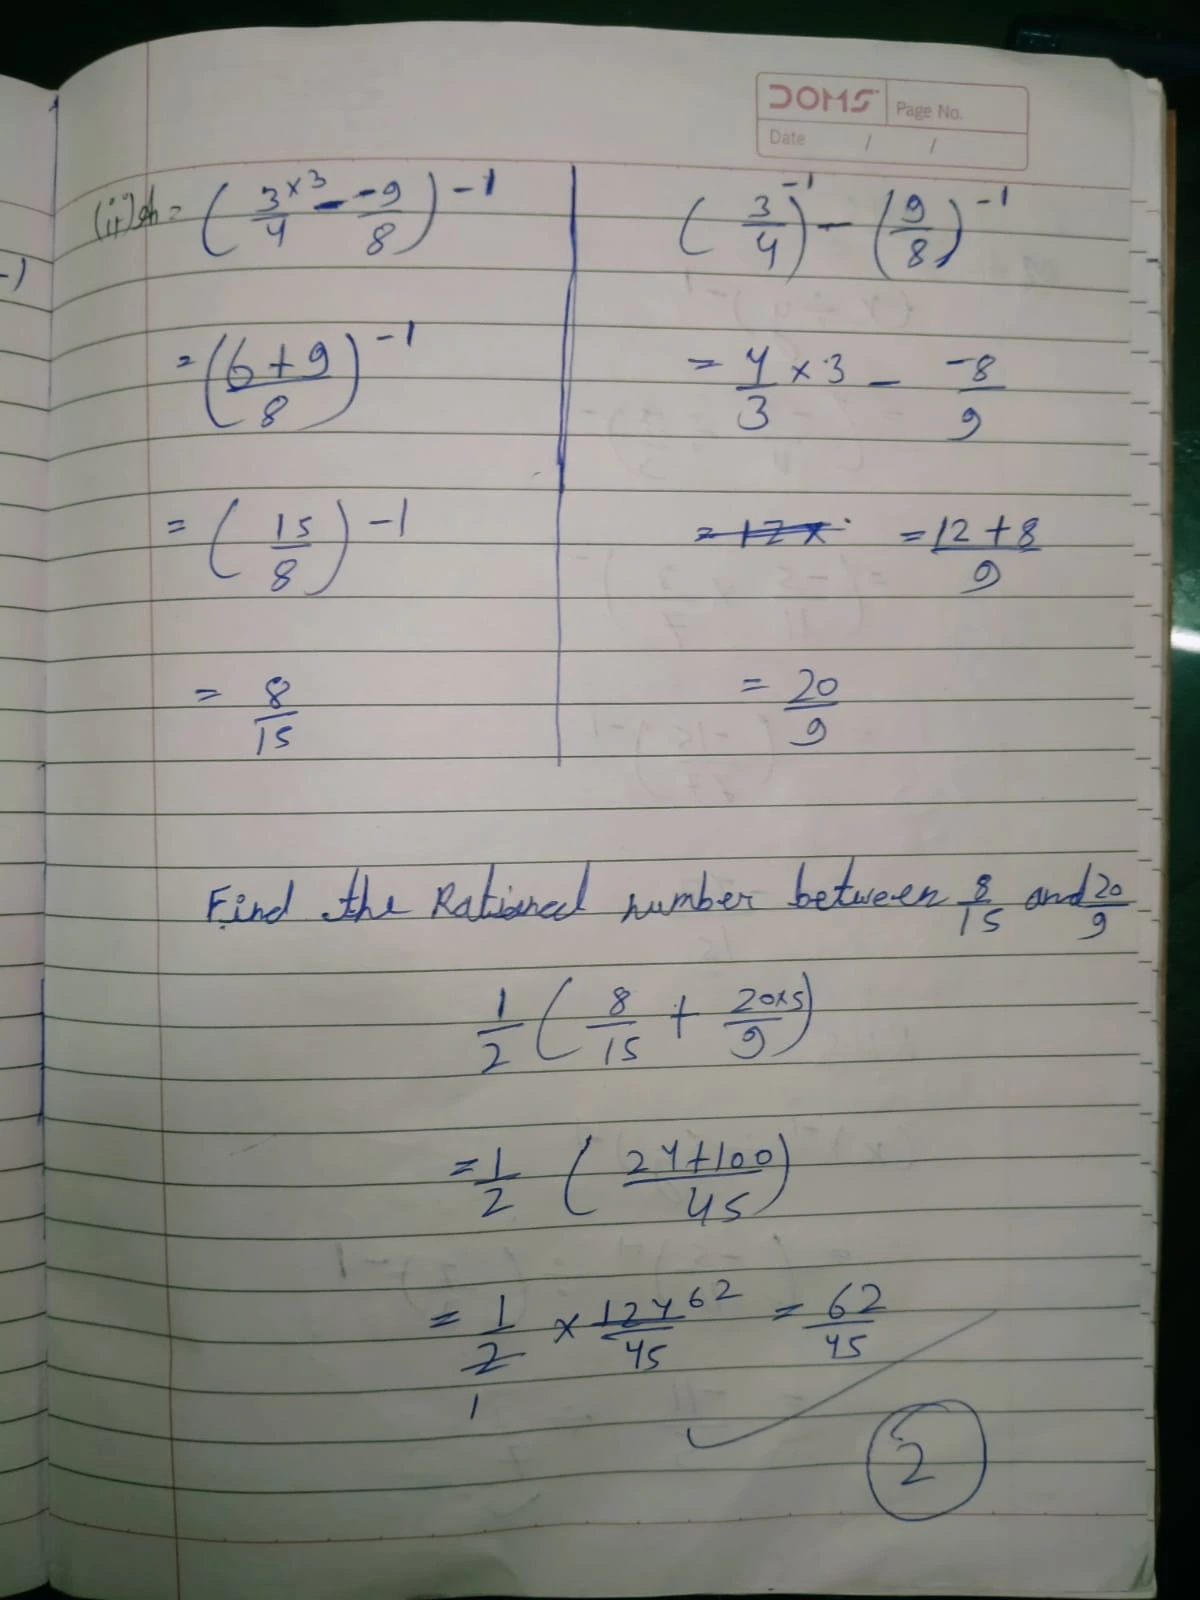 DOMS Page No.
Date / /
(ii) = (3×3/4 - -9/8)-1
= (6+9/8)-1
= (15/8)-1
= 8/15
(3/4)-1 - (9/8)-1
= 4/3 ×3 - -8/9
= 12 × = 12+8/9
= 20/9
Find the Rational number between 8/15 and 20/9
1/2 (8/15 + 20×5/9)
= 1/2 (24+100/45)
= 1/2 × 124/45 62 = 62/45
1
2
-1